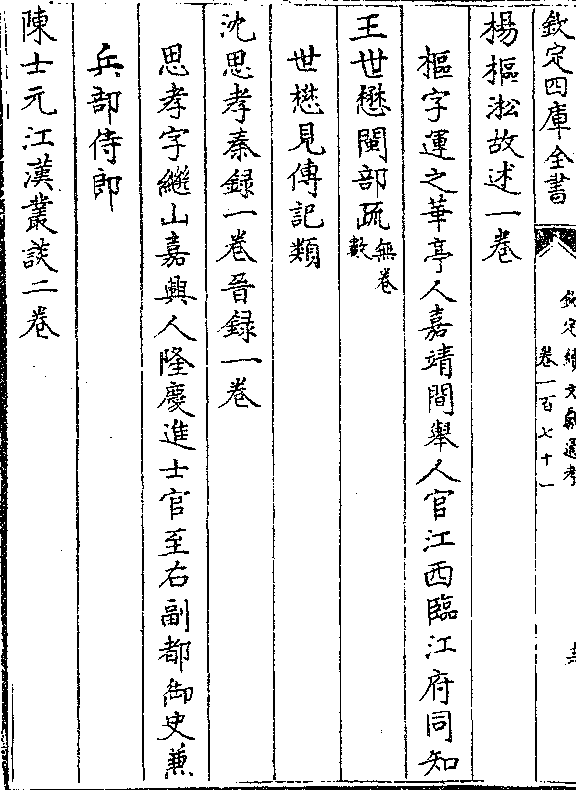 欽定四庫全書
欽定續文獻通考
卷一百七十一
楊樞淞故述一卷
樞字運之華亭人嘉靖間舉人官江西臨江府同知
王世懋閩部疏無卷數
世懋見傳記類
沈思孝秦録一卷晉録一卷
思孝字繼山嘉興人隆慶進士官至右副都御史兼
兵部侍郎
陳士元江漢叢談二卷